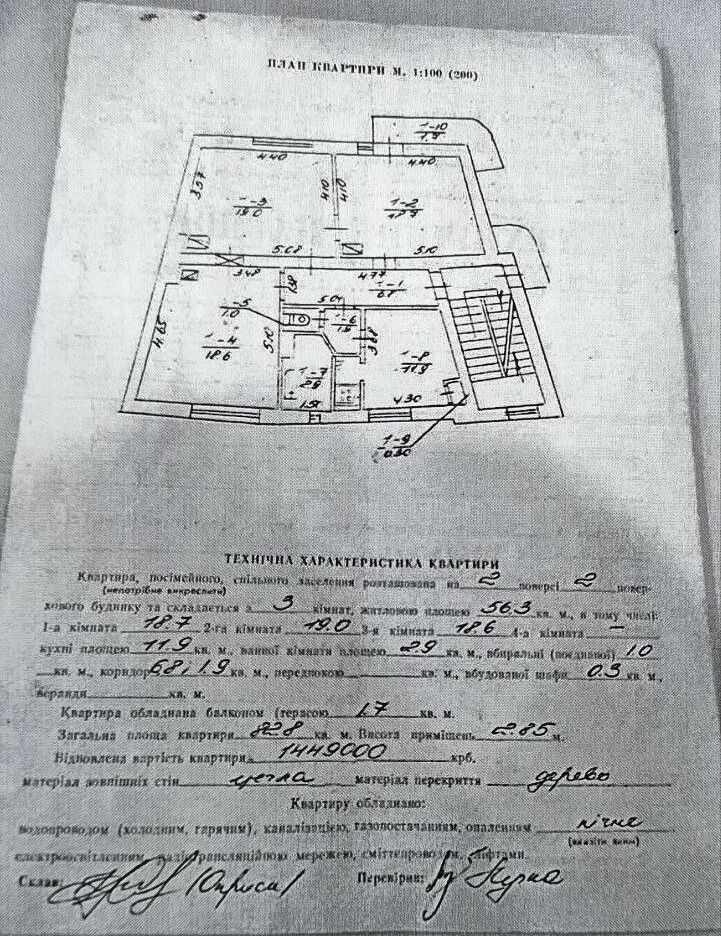 ПЛАН КВАРТИРИ М. 1:100 (200)
1-10
1.7
4.40
4.40
3.57
4.10
4.10
1-3
19.0
1-2
18.7
5.08
5.10
3.48
4.77
1-1
6.8
5.01
1-5
1.0
1-6
1.9
4.65
1-4
18.6
5.10
3.68
1-8
11.9
1-7
2.9
1.51
4.30
1-9
0.30
ТЕХНІЧНА ХАРАКТЕРИСТИКА КВАРТИРИ
Квартира, посімейного, спільного заселення розташована на 2 поверсі 2 повер-
(непотрібне викреслити)
хового будинку та складається з 3 кімнат, житловою площею 56.3 кв. м., в тому числі:
1-а кімната 18.7 2-га кімната 19.0 3-я кімната 18.6 4-а кімната —
кухні площею 11.9 кв. м., ванної кімнати площею 2.9 кв. м., вбиральні (поєднаної) 1.0
кв. м., коридор 6.8 і 1.9 кв. м., передпокою кв. м., вбудованої шафи 0.3 кв. м.,
веранди кв. м.
Квартира обладнана балконом (терасою 1.7 кв. м.
Загальна площа квартири 82.8 кв. м. Висота приміщень 2.85 м.
Відновлена вартість квартири 1449000 крб.
матеріал зовнішніх стін цегла матеріал перекриття дерево
Квартиру обладнано:
водопроводом (холодним, гарячим), каналізацією, газопостачанням, опаленням пічне
(вказати яким)
електроосвітленням, радіотрансляційною мережею, сміттєпроводом, ліфтами.
Склав: Перевірив: